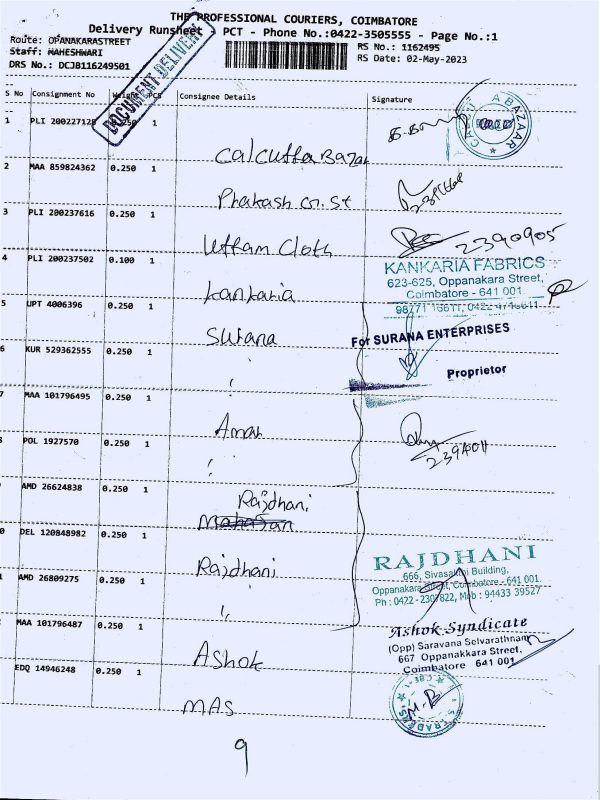 THE PROFESSIONAL COURIERS, COIMBATORE
Delivery Runsheet - PCT - Phone No.:0422-3505555 - Page No.:1
Route: OPANAKARASTREET
Staff: MAHESHWARI
DRS No.: DCJB116249501
RS No.: 1162495
RS Date: 02-May-2023
DOCUMENT DELIVERY
S No Consignment No Weight PCS Consignee Details Signature
1 PLI 200227128 0.250 1 Calcutta Bazar
CALCUTTA BAZAAR
2 MAA 859824362 0.250 1 Phakash cn. St
3 PLI 200237616 0.250 1 Uttam Cloth
2390905
4 PLI 200237502 0.100 1 kankaria
KANKARIA FABRICS
623-625, Oppanakara Street,
Coimbatore - 641 001
5 UPT 4006396 0.250 1 Surana
For SURANA ENTERPRISES
Proprietor
6 KUR 529362555 0.250 1
7 MAA 101796495 0.250 1 Amar
8 POL 1927570 0.250 1
AMD 26624838 0.250 1 Rajdhani
0 DEL 120848982 0.250 1 Rajdhani
RAJDHANI
666, Sivasakthi Building,
Oppanakara Street, Coimbatore - 641 001.
Ph : 0422 - 2307822, Mob : 94433 39527
1 AMD 26809275 0.250 1
MAA 101796487 0.250 1 Ashok
Ashok Syndicate
(Opp) Saravana Selvarathnam
667 Oppanakkara Street,
Coimbatore 641 001
EDQ 14946248 0.250 1 MAS
M.B
TRADERS
CBE-1
9